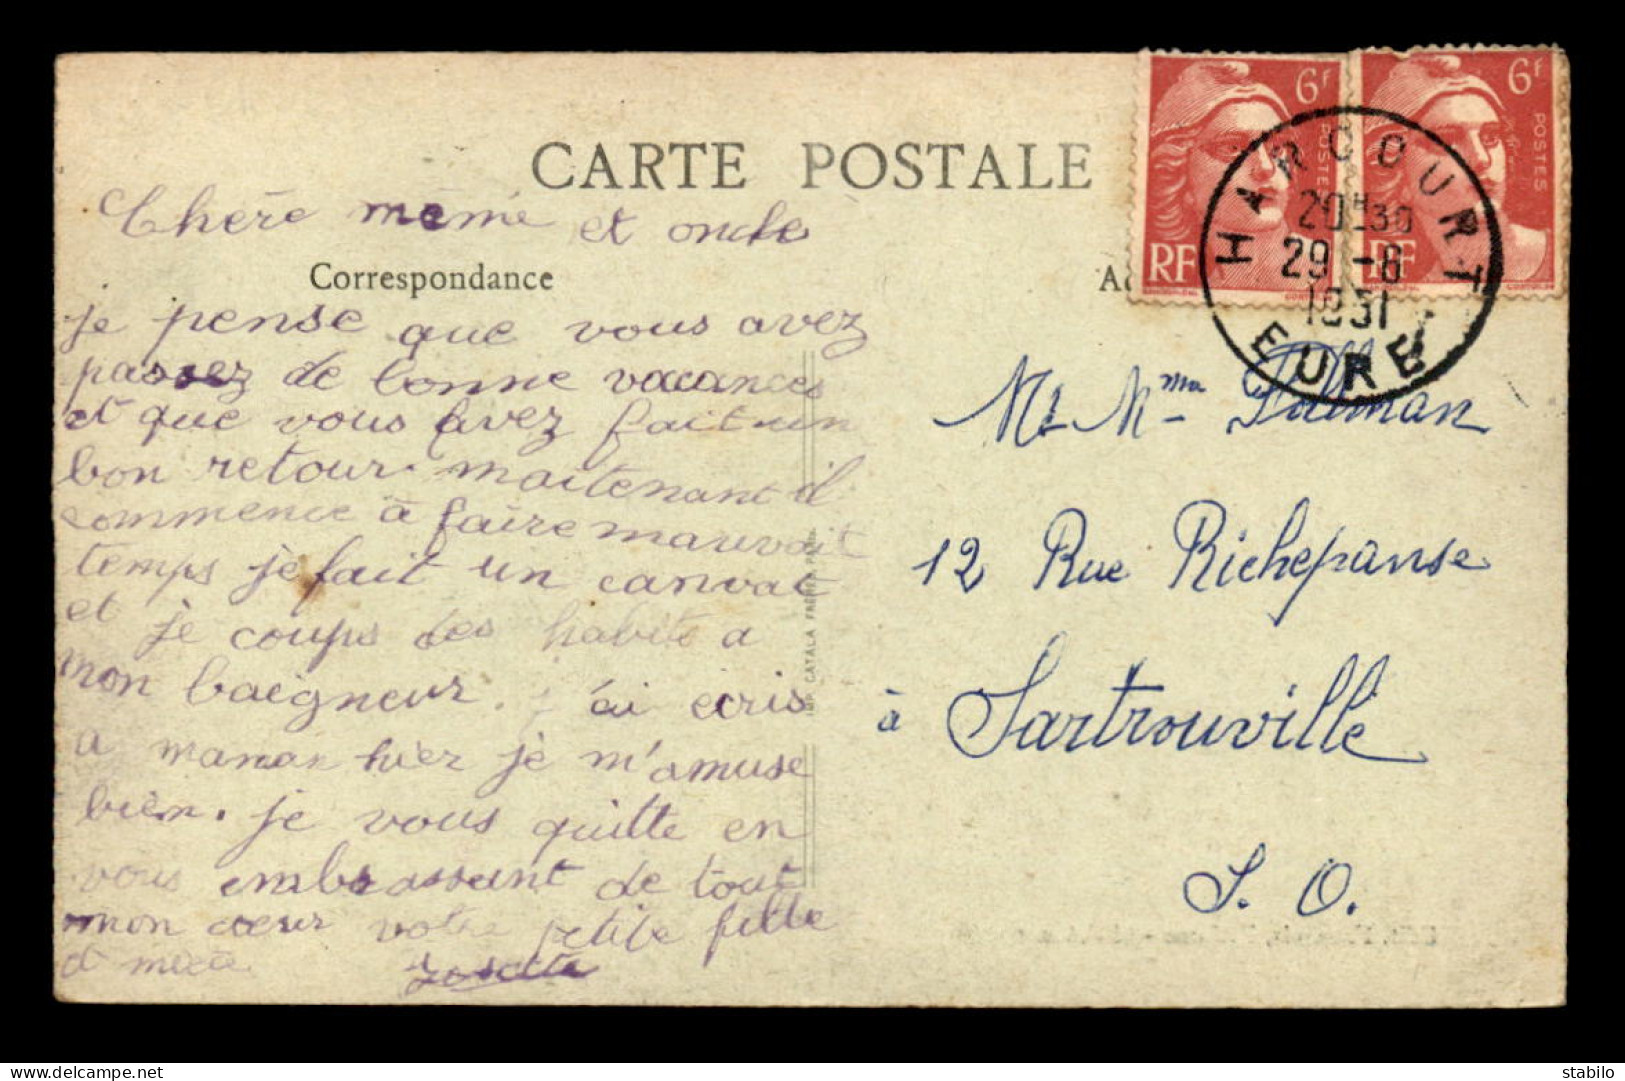 CARTE POSTALE
Chère mémé et oncle
Correspondance
je pense que vous avez
passez de bonne vacances
et que vous avez fait un
bon retour. maitenant il
commence à faire mauvait
temps je fait un canvac
et je coups des habits a
mon baigneur. j'ai ecris
a maman hier je m'amuse
bien. je vous quitte en
vous embrassant de tout
mon coeur votre petite fille
et niece
Josette
IMP. CATALA FRÈRES
6F
POSTES
RF
6F
POSTES
RF
HARCOURT
20H30
29-8
1951
EURE
Mr Mme
12 Rue Richepanse
à Sartrouville
S. O.
stabilo